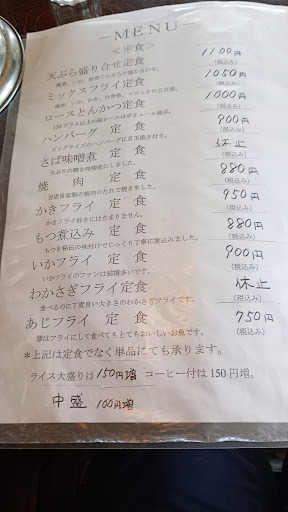 —MENU—
＜定食＞
天ぷら盛り合せ定食 1100円
(税込み)
ミックスフライ定食 1050円
(税込み)
ロースとんかつ定食 1000円
(税込み)
ハンバーグ 定 食 900円
ビッグサイズのハンバーグに目玉焼き付き。 (税込み)
さば味噌煮 定 食 休止
大ぶりの鯖を味噌煮にしました。 (税込み)
焼 肉 定 食 880円
当店自家製の焼肉のたれで焼きました。 (税込み)
かきフライ 定 食 950円
かきフライ好きにはたまりません。 (税込み)
もつ煮込み 定 食 880円
もつを秘伝の味付けでじっくり丁寧に煮込みました。 (税込み)
いかフライ 定 食 900円
いかフライのファンは結構多いです。 (税込み)
わかさぎフライ定食 休止
食べるのに丁度良い大きさのわかさぎフライです。 (税込み)
あじフライ 定 食 750円
鯵はフライにして食べてもとてもおいしいお魚です。 (税込み)
＊上記は定食でなく単品にても承ります。
ライス大盛りは150円増 コーヒー付は150円増。
中盛 100円増